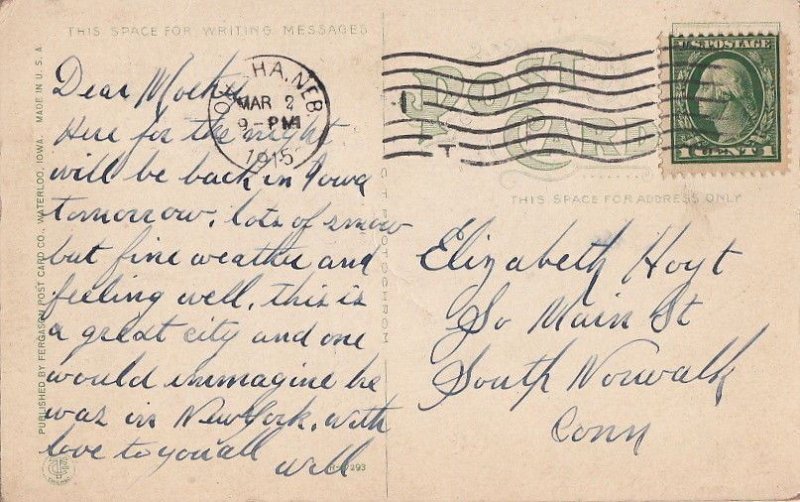 THIS SPACE FOR WRITING MESSAGES
Dear Mother
Here for the night
will be back in Iowa
tomorrow. lots of snow
but fine weather and
feeling well. this is
a great city and one
would immagine he
was in New York. with
love to you all
Will
PUBLISHED BY FERGASON POST CARD CO., WATERLOO, IOWA. MADE IN U. S. A
C. T. PHOTOCHROM
HA, NEB
MAR 2
9-PM
1915
POST
CARD
U.S. POSTAGE
1 CENT 1
THIS SPACE FOR ADDRESS ONLY
Elizabeth Hoyt
So Main St
South Norwalk
Conn